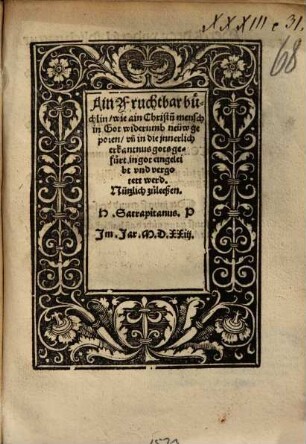 XXXIII e 31.
68
Ain Fruchtbar bů-
chlin/ wie ain Christē mensch
in Got widerumb neüw ge
poren/ vn̄ in die jnnerlich
erkantnus gots ge-
fürt, in got eingelei
bt vnd vergo
tett werd.
Nützlich zůleßen.
H. Satrapitanus. P
Im. Jar. M. D. XXiij.
1523